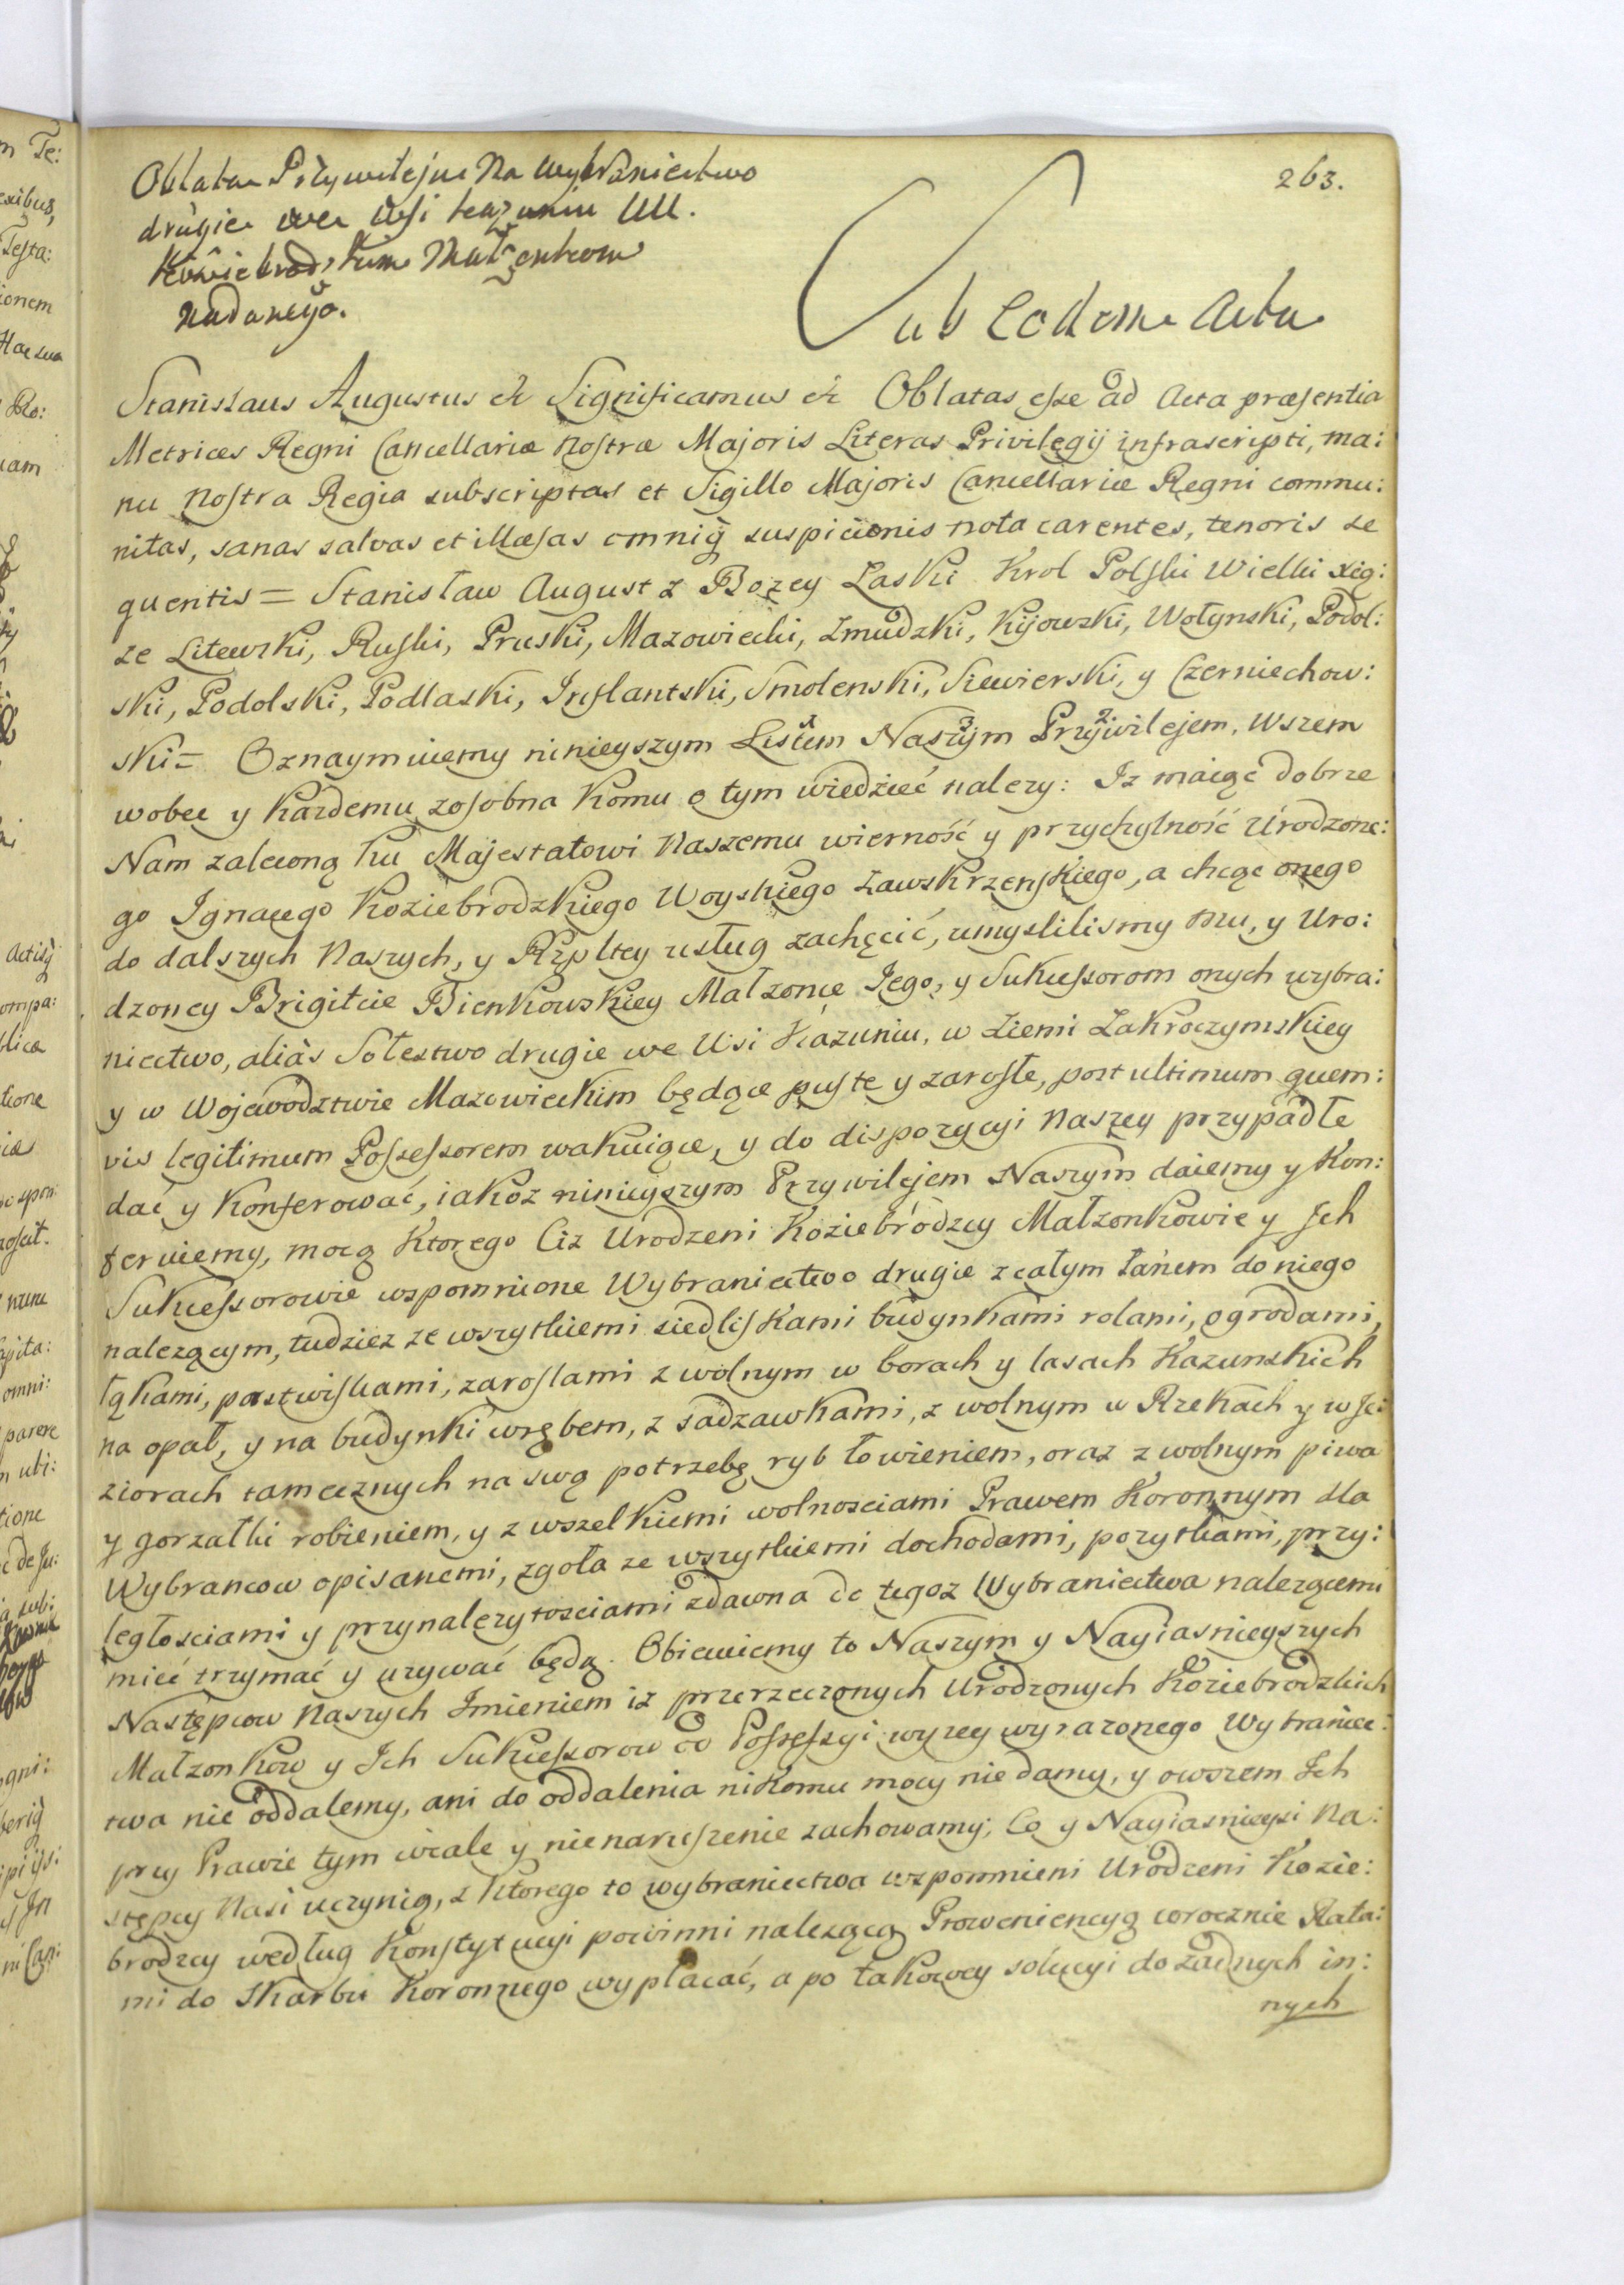 263.
Oblata Przywileju Na wybraniectwo
drugie we Wsi Kazuniu UU.
Koziebrodzkim Małżonkom
nadanego.
Sub Eodem Actu
Stanislaus Augustus etc Significamus etc Oblatas esse ad Acta præsentia
Metrices Regni Cancellariæ nostræ Majoris Literas Privilegij infrascripti, ma:
nu nostra Regia subscriptas et Sigillo Majoris Cancellariæ Regni commu:
nitas, sanas salvas et illæsas omniq suspicionis nota carentes, tenoris se
quentis = Stanisław August z Bozey Laski Krol Polski Wielki Xig:
ze Litewski, Ruski, Pruski, Mazowiecki, Zmudzki, Kijowski, Wołynski, Podol:
ski, Podolski, Podlaski, Inflantski, Smolenski, Siewierski, y Czerniechow:
ski = Oznaymuiemy ninieyszym Listem Naszym Przywilejem, Wszem
wobec y Kazdemu zosobna Komu o tym wiedzieć nalezy: Iz maiąc dobrze
Nam zaleconą ku Majestatowi Naszemu wierność y przychylność Urodzone:
go Ignacego Koziebrodzkiego Woyskiego Zawskrzenskiego, a chcąc onego
do dalszych Naszych, y Rzpltey usług zachęcić, umyslilismy mu, y Uro:
dzoney Brigitcie Bienkowskiey Małzonce Jego, y Sukcessorom onych wybra:
niectwo, aliàs Sołestwo drugie we Wsi Kazuniu, w Ziemi Zakroczymskiey
y w Wojewodztwie Mazowieckim będące puste y zarosłe, post ultimum quem:
vis legitimum Possessorem wakuiące, y do dispozycyi Naszey przypadłe
dać y Konferować, iakoz ninieyszym Przywilejem Naszym daiemy y Kon:
feruiemy, mocą Ktorego Ciz Urodzeni Koziebrodzcy Małzonkowie y Ich
Sukcessorowie wspomnione Wybraniectwo drugie z całym łanem do niego
nalezącym, tudziez ze wszytkiemi siedliskami budynkami rolami, ogrodami,
łąkami, pastwiskami, zaroslami z wolnym w borach y lasach Kazunskich
na opał, y na budynki wrębem, z sadzawkami, z wolnym w Rzekach y w Je:
ziorach tamecznych na swą potrzebę ryb łowieniem, oraz z wolnym piwa
y gorzałki robieniem, y z wszelkiemi wolnosciami Prawem Koronnym dla
Wybrancow opisanemi, zgoła ze wszytkiemi dochodami, pozytkami, przy:
ległosciami y przynalezytosciami zdawna do tegoz Wybraniectwa nalezącemi
mieć trzymać y uzywać będą. Obiecuiemy to Naszym y Nayiasnieyszych
Następcow Naszych Imieniem iz przerzeczonych Urodzonych Koziebrodzkich
Małzonkow y Ich Sukcessorow od Possessyi wyzey wyrazonego Wybraniec:
twa nie oddalemy, ani do oddalenia nikomu mocy nie damy, y owszem Ich
przy Prawie tym wcale y nienaruszenie zachowamy; Co y Nayiasnieysi Na:
stępcy Nasi uczynią, z Ktorego to wybraniectwa wspomnieni Urodzeni Kozie:
brodzcy według Konstytucyi powinni nalezącą Proweniencyą corocznie Rata:
mi do Skarbu Koronnego wypłacać, a po takowey solucyi do zadnych in:
nych